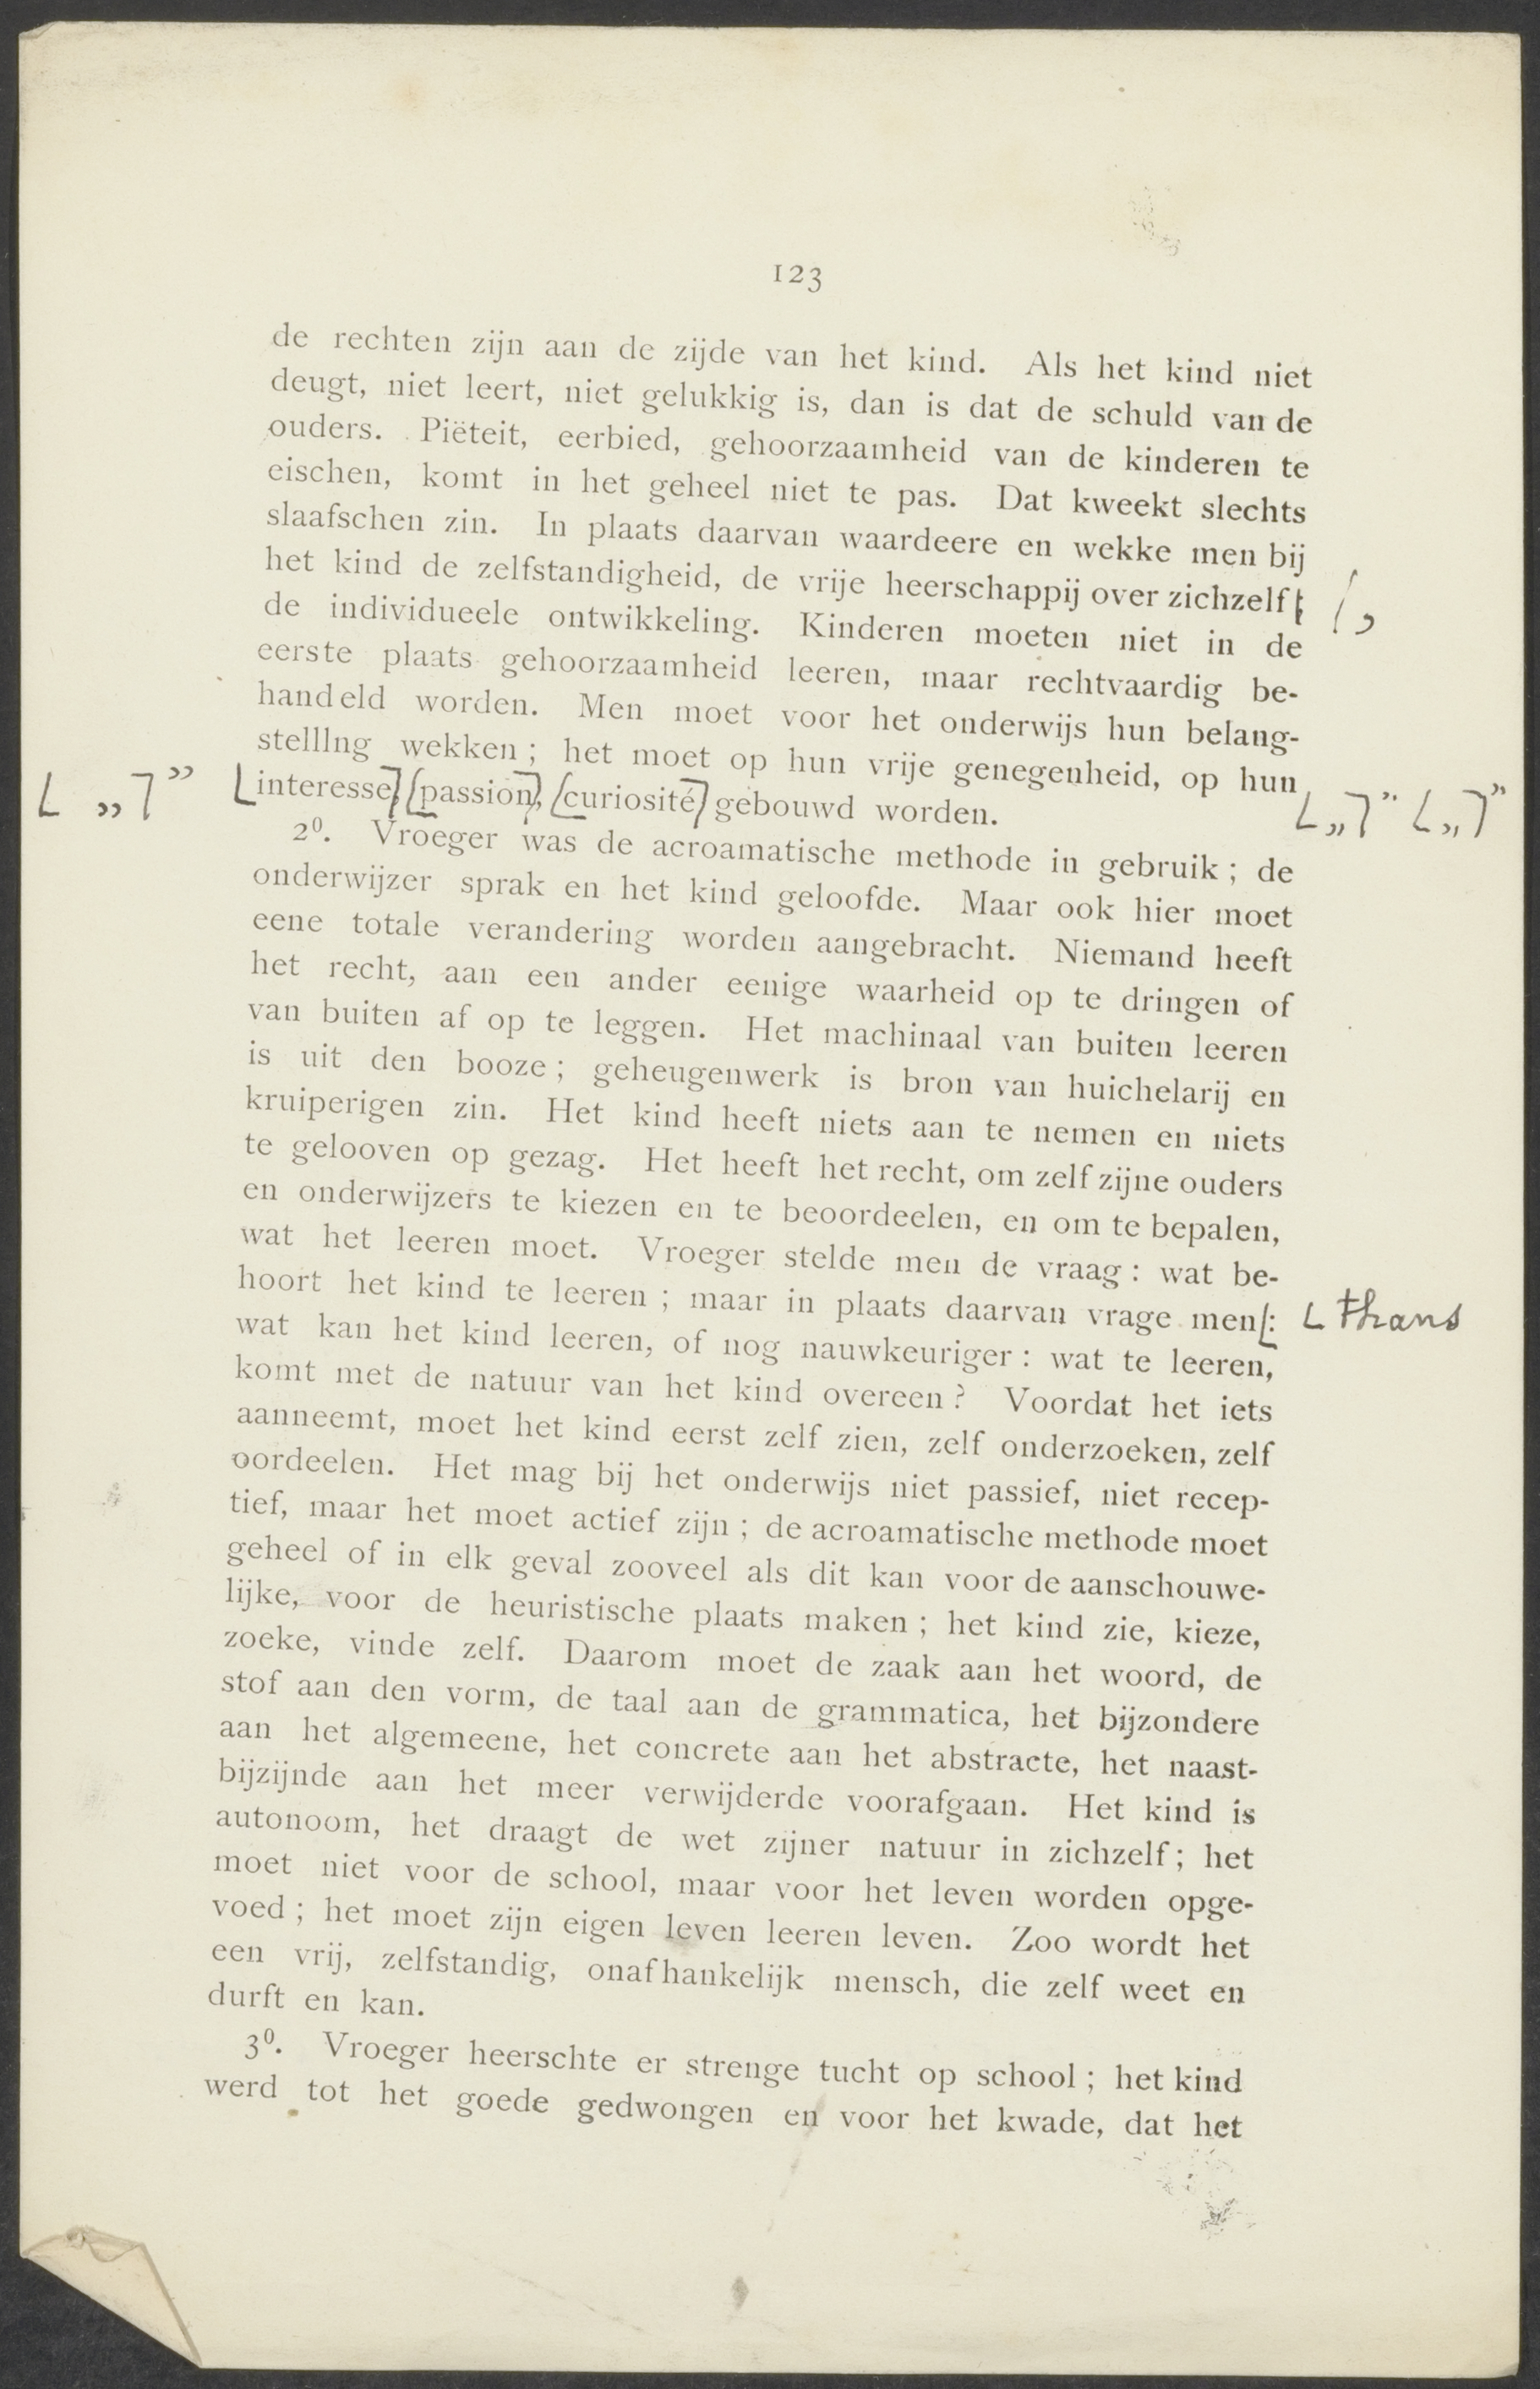 123
de rechten zijn aan de zijde van het kind. Als het kind niet
deugt, niet leert, niet gelukkig is, dan is dat de schuld van de
ouders. Piëteit, eerbied, gehoorzaamheid van de kinderen te
eischen, komt in het geheel niet te pas. Dat kweekt slechts
slaafschen zin. In plaats daarvan waardeere en wekke men bij
het kind de zelfstandigheid, de vrije heerschappij over zichzelf ,
de individueele ontwikkeling. Kinderen moeten niet in de
eerste plaats gehoorzaamheid leeren, maar rechtvaardig be-
handeld worden. Men moet voor het onderwijs hun belang-
stelllng wekken ; het moet op hun vrije genegenheid, op hun
„ ” interesse, passion, curiosité gebouwd worden. „ ” „ ”
2⁰. Vroeger was de acroamatische methode in gebruik ; de
onderwijzer sprak en het kind geloofde. Maar ook hier moet
eene totale verandering worden aangebracht. Niemand heeft
het recht, aan een ander eenige waarheid op te dringen of
van buiten af op te leggen. Het machinaal van buiten leeren
is uit den booze ; geheugenwerk is bron van huichelarij en
kruiperigen zin. Het kind heeft niets aan te nemen en niets
te gelooven op gezag. Het heeft het recht, om zelf zijne ouders
en onderwijzers te kiezen en te beoordeelen, en om te bepalen,
wat het leeren moet. Vroeger stelde men de vraag : wat be-
hoort het kind te leeren ; maar in plaats daarvan vrage men : thans
wat kan het kind leeren, of nog nauwkeuriger : wat te leeren,
komt met de natuur van het kind overeen ? Voordat het iets
aanneemt, moet het kind eerst zelf zien, zelf onderzoeken, zelf
oordeelen. Het mag bij het onderwijs niet passief, niet recep-
tief, maar het moet actief zijn ; de acroamatische methode moet
geheel of in elk geval zooveel als dit kan voor de aanschouwe-
lijke, voor de heuristische plaats maken ; het kind zie, kieze,
zoeke, vinde zelf. Daarom moet de zaak aan het woord, de
stof aan den vorm, de taal aan de grammatica, het bijzondere
aan het algemeene, het concrete aan het abstracte, het naast-
bijzijnde aan het meer verwijderde voorafgaan. Het kind is
autonoom, het draagt de wet zijner natuur in zichzelf ; het
moet niet voor de school, maar voor het leven worden opge-
voed ; het moet zijn eigen leven leeren leven. Zoo wordt het
een vrij, zelfstandig, onafhankelijk mensch, die zelf weet en
durft en kan.
3⁰. Vroeger heerschte er strenge tucht op school ; het kind
werd tot het goede gedwongen en voor het kwade, dat het